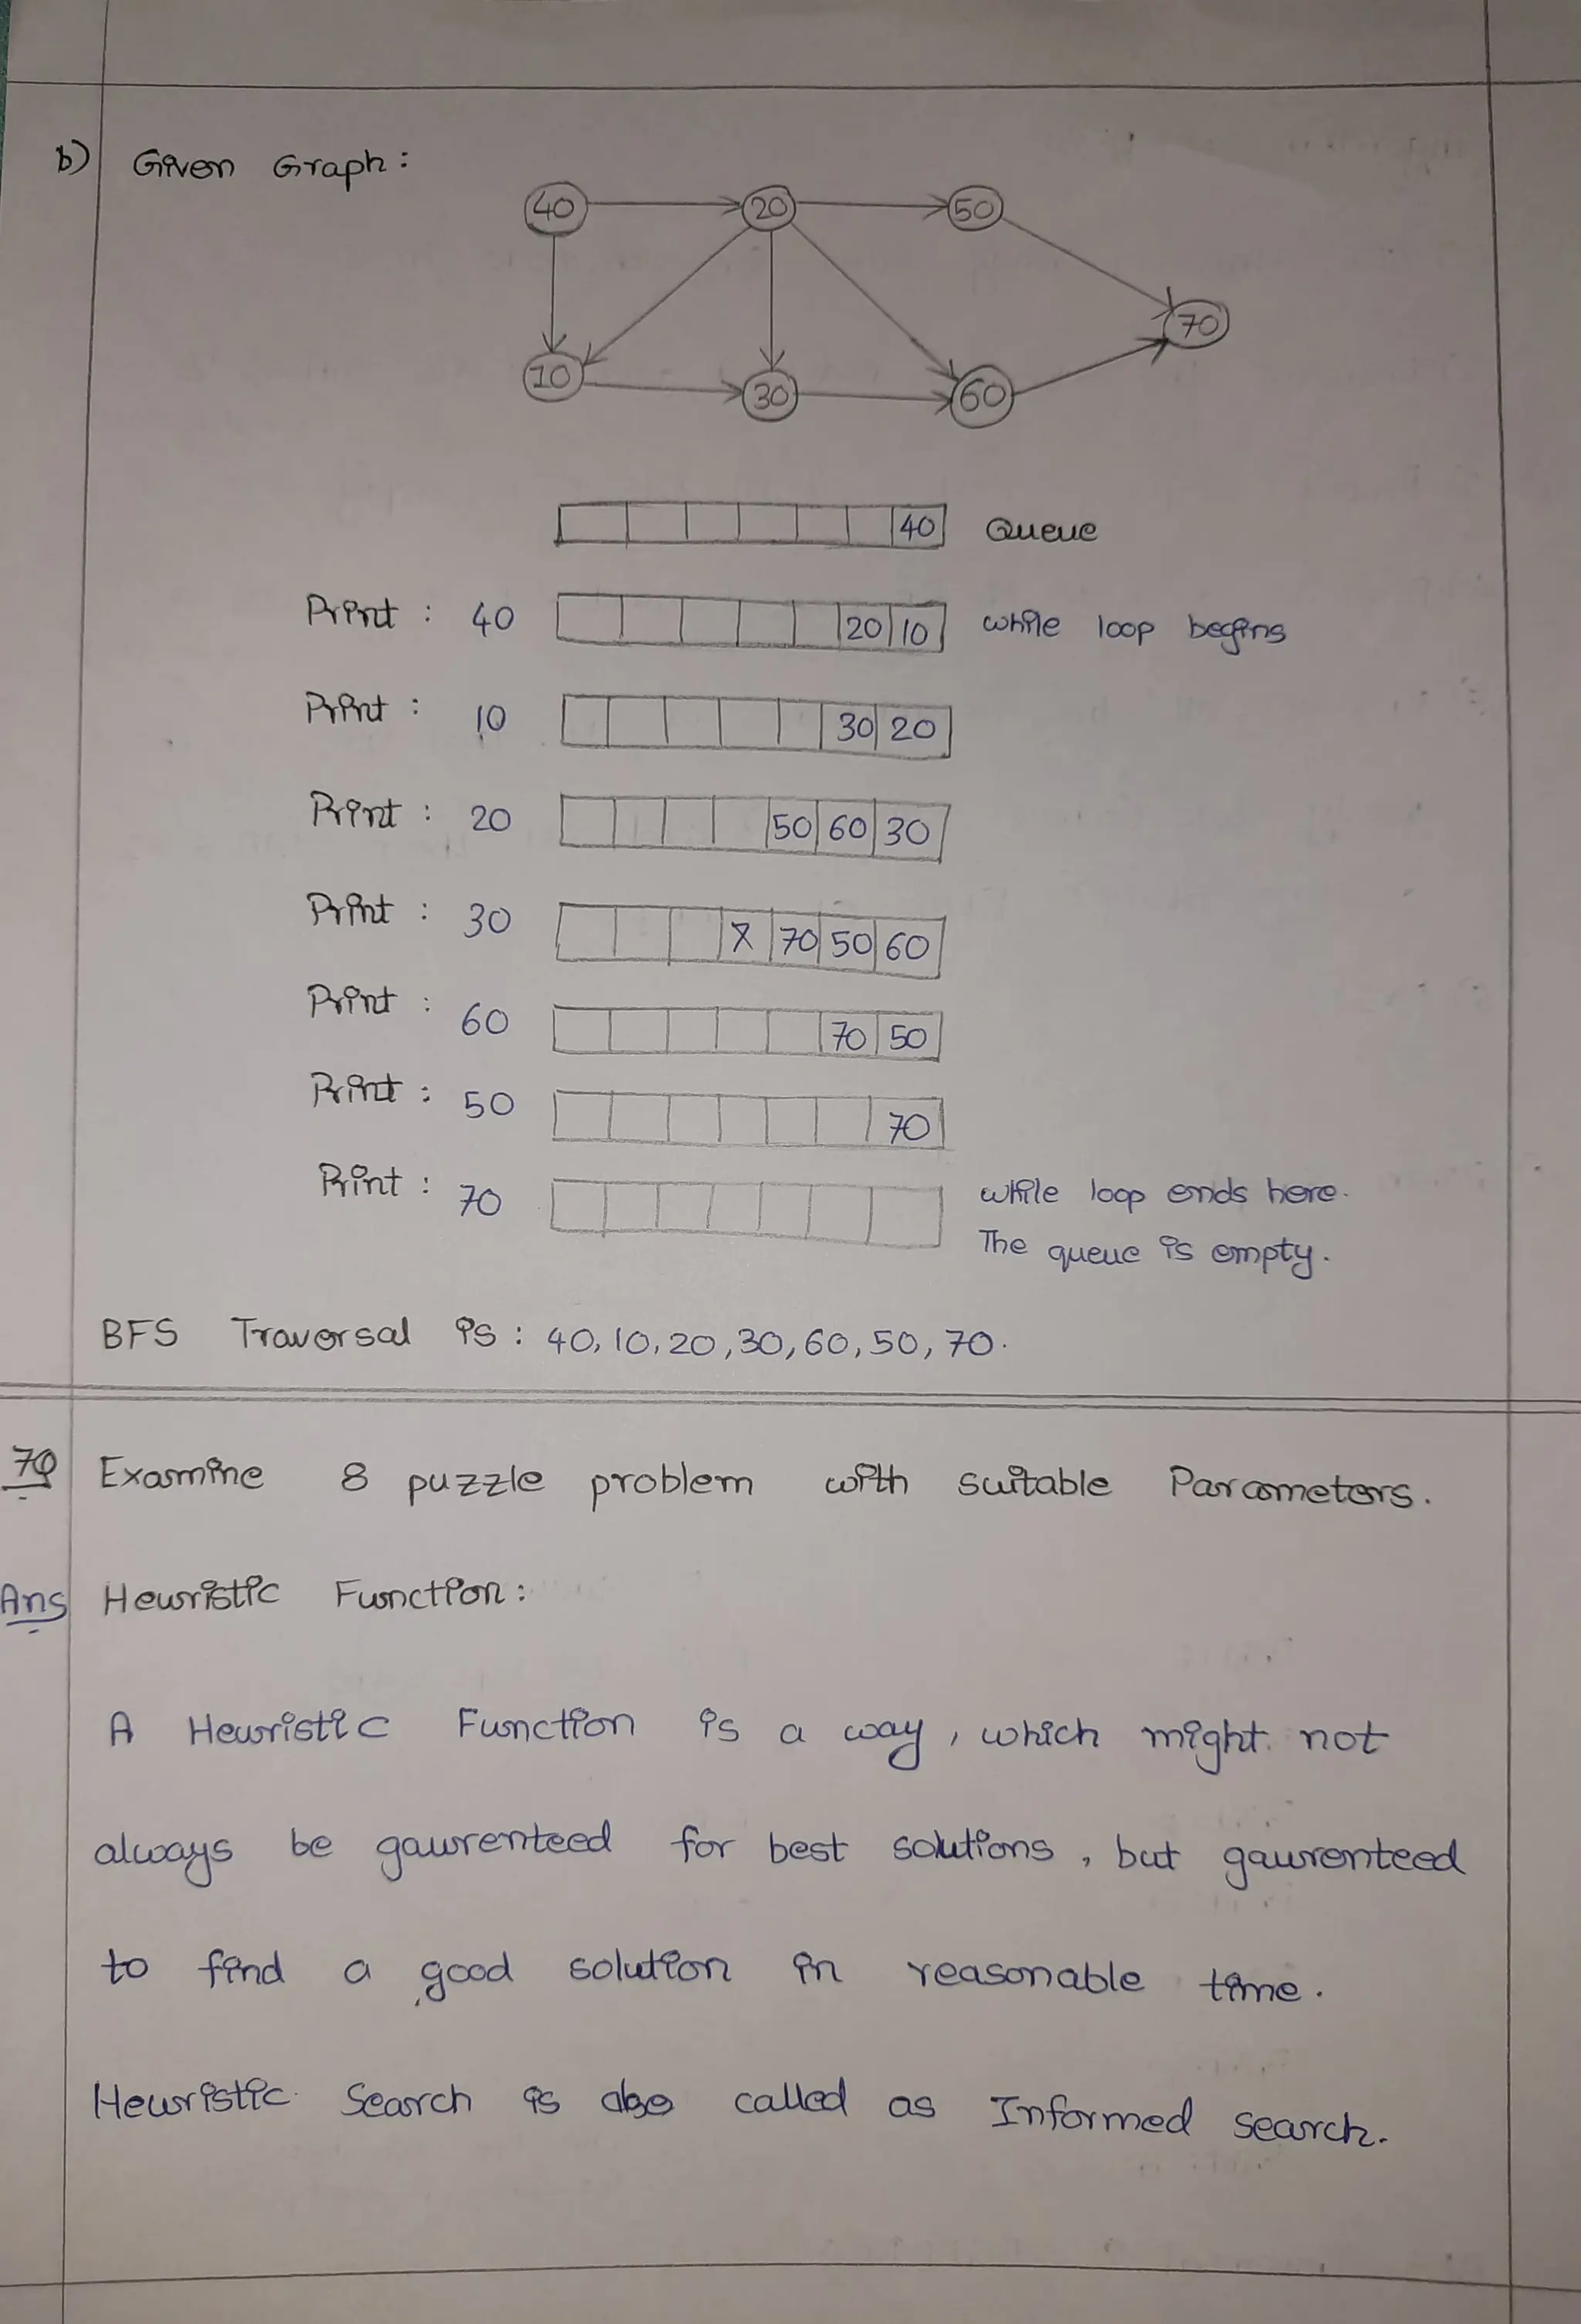 b) Given Graph:
40 20 50
70
10 30 60
40 Queue
Print : 40 20 10 while loop begins
Print : 10 30 20
Print : 20 50 60 30
Print : 30 70 50 60
Print : 60 70 50
Print : 50 70
Print : 70 while loop ends here.
The queue is empty.
BFS Traversal is : 40, 10, 20, 30, 60, 50, 70.
7Q Examine 8 puzzle problem with suitable Parameters.
Ans Heuristic Function:
A Heuristic Function is a way, which might not
always be gaurenteed for best solutions, but gaurenteed
to find a good solution in reasonable time.
Heuristic Search is also called as Informed search.